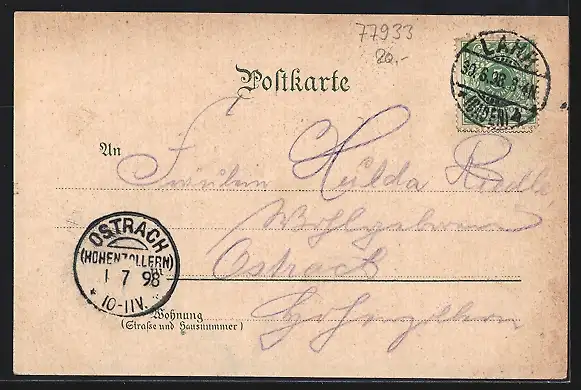 77933
20,-
LAHR
30.6.98.
(BADEN)
Postkarte
An
Fräulein Hulda Riedle
Wohlgeboren
Ostrach
Hohenzollern
OSTRACH
(HOHENZOLLERN)
1 7 98
* 10-11V.
Wohnung
(Straße und Hausnummer)